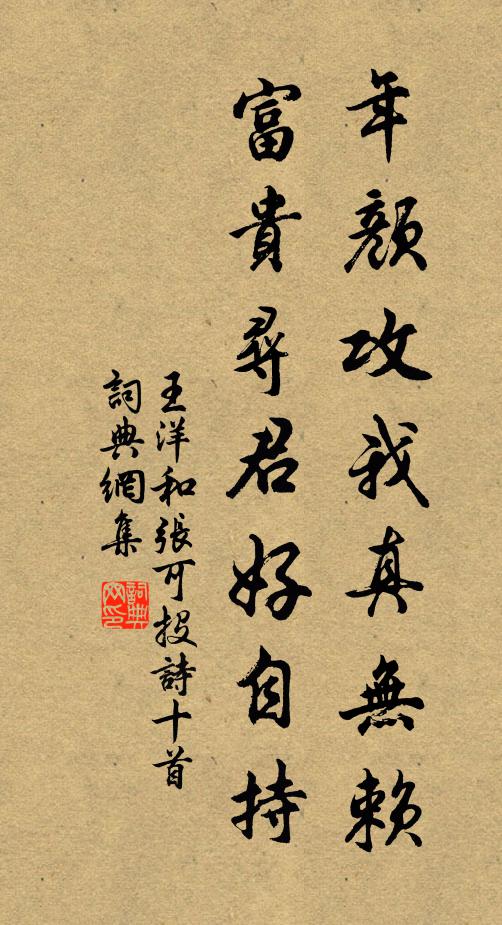 年顏攻我真無賴
富貴尋君好自持
王洋和張可投詩十首
詞典網集
詞典网印